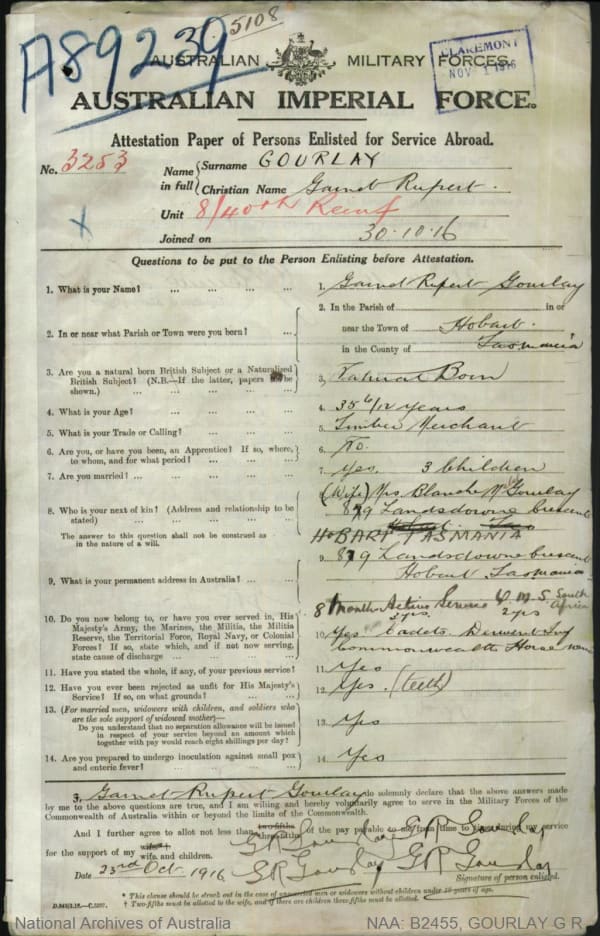 A89239
5108
AUSTRALIAN MILITARY FORCES.
CLAREMONT
NOV 1 1916
AUSTRALIAN IMPERIAL FORCE.
Attestation Paper of Persons Enlisted for Service Abroad.
No. 3253
Name in full
Surname GOURLAY
Christian Name Garnet Rupert.
Unit 8/40th Reinf
Joined on 30.10.16
X
Questions to be put to the Person Enlisting before Attestation.
1. What is your Name? ... ... ... ... 1. Garnet Rupert Gourlay
2. In or near what Parish or Town were you born? ... 2. In the Parish of in or
near the Town of Hobart.
in the County of Tasmania
3. Are you a natural born British Subject or a Naturalised
British Subject? (N.B.—If the latter, papers to be
shown.) ... ... ... ... 3. Natural Born
4. What is your Age? ... ... ... ... 4. 35 6/12 years
5. What is your Trade or Calling? ... ... ... 5. Timber Merchant
6. Are you, or have you been, an Apprentice? If so, where,
to whom, and for what period? ... ... ... 6. No.
7. Are you married? ... ... ... ... 7. Yes. 3 Children
8. Who is your next of kin? (Address and relationship to be
stated) ... ... ... ...
The answer to this question shall not be construed as
in the nature of a will.
(Wife) Mrs. Blanche M Gourlay
8. 79 Landsdowne Crescent
HOBART TASMANIA
9. What is your permanent address in Australia? ... ... 9. 79 Landsdowne Crescent
Hobart Tasmania
10. Do you now belong to, or have you ever served in, His
Majesty's Army, the Marines, the Militia, the Militia
Reserve, the Territorial Force, Royal Navy, or Colonial
Forces? If so, state which, and if not now serving,
state cause of discharge ... ... ...
8 Months Active Service South
Africa
3 yrs 2 yrs
10. Yes Cadets. Derwent Inf
Commonwealth Horse
11. Have you stated the whole, if any, of your previous service? 11. Yes
12. Have you ever been rejected as unfit for His Majesty's
Service? If so, on what grounds? ... ... 12. Yes. (teeth)
13. (For married men, widowers with children, and soldiers who
are the sole support of widowed mother)—
Do you understand that no separation allowance will be issued
in respect of your service beyond an amount which
together with pay would reach eight shillings per day? ... 13. Yes
14. Are you prepared to undergo inoculation against small pox
and enteric fever? ... ... ... ... 14. Yes
I, Garnet Rupert Gourlay do solemnly declare that the above answers made
by me to the above questions are true, and I am willing and hereby voluntarily agree to serve in the Military Forces of the
Commonwealth of Australia within or beyond the limits of the Commonwealth.
And I further agree to allot not less than two-fifths of the pay payable to me from time to time during my service
for the support of my wife and children.
G R Gourlay G R Gourlay
Date 23rd Oct. 1916 G R Gourlay G R Gourlay
Signature of person enlisted.
* This clause should be struck out in the case of unmarried men or widowers without children under 18 years of age.
† Two-fifths must be allotted to the wife, and if there are children three-fifths must be allotted.
National Archives of Australia
NAA: B2455, GOURLAY G R